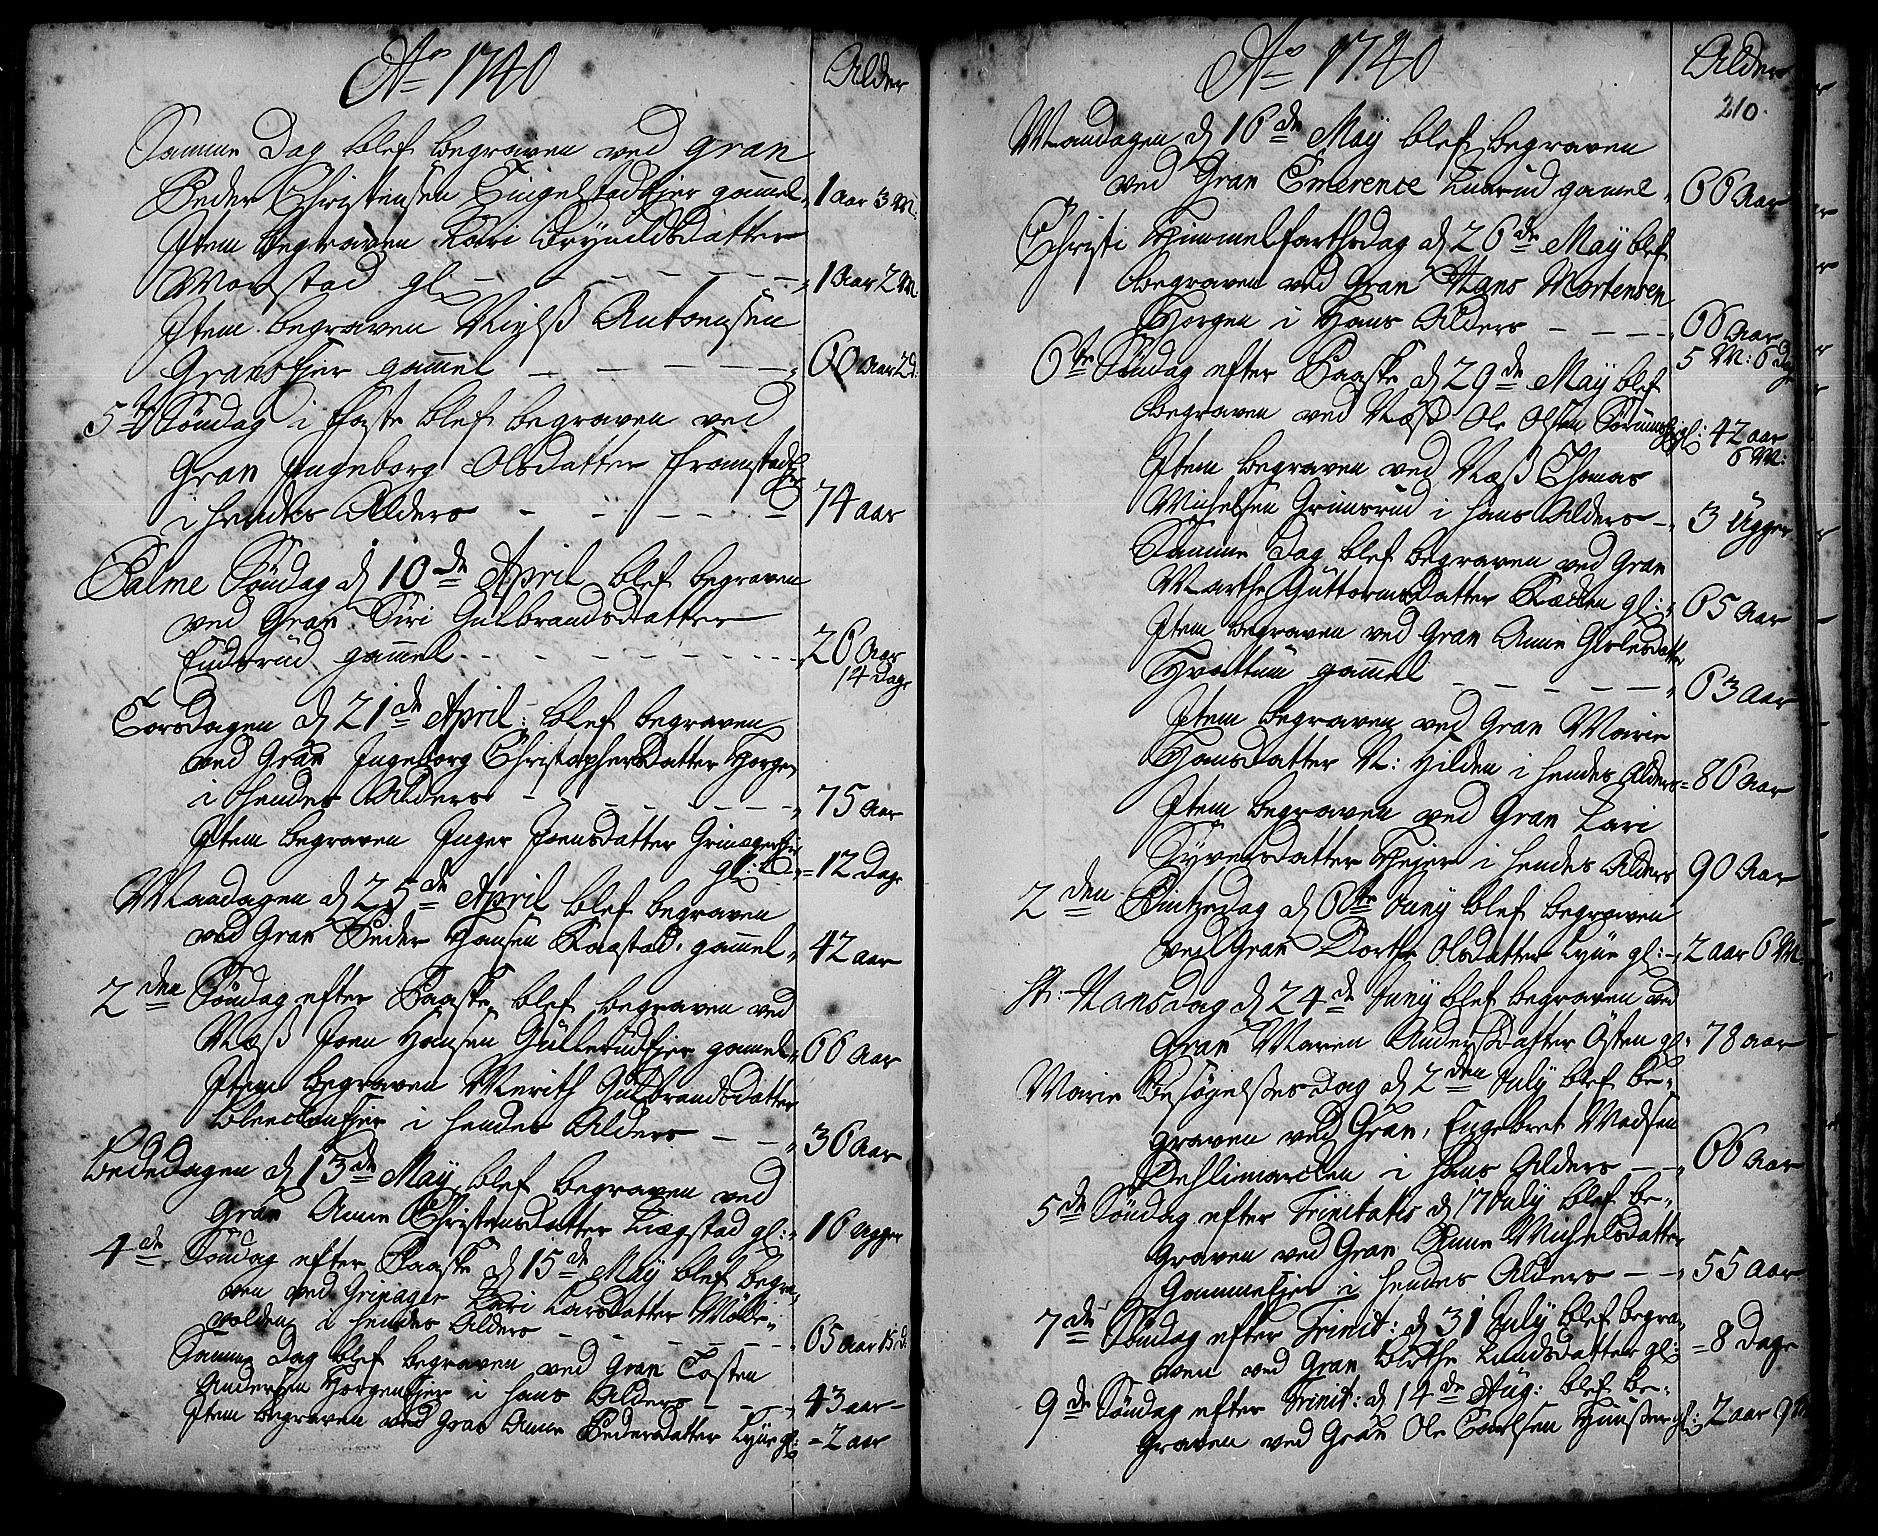 Ao 1740
Alder
Samme Dag blef begraven ved Gran
Peder Christensen Tingelstadejer gamel 1 aar 3 M:
Item begraven Kari Brynildsdatter
Morstad gl: 1 Aar 2 M
Item begraven Nielß Antonisen
Gransejer gamel 60 Aar 2 d:
5te Søndag i Faste blef begraven ved
Gran Ingeborg Olsdatter Framstadejer
i hendes Alders 74 aar
Palme Søndag d 10de April blef begraven
ved Gran Siri Gulbrandsdatter
Endsrud gamel 26 Aar
14 Dage
Torsdagen d 21de April: blef begraven
ved Gran Ingeborg Christophersdatter Horgen
i hendes Alders 75 Aar
Item begraven Inger Joensdatter
gl: 12 Dage
Mandagen d 25de April blef begraven
ved Gran Peder Hansen Kaastad gamel 42 aar
2den Søndag efter Paaske blef begraven ved
Næß Joen Hansen Gullerudejer gamel 66 Aar
Item begraven Merith Gulbrandsdatter
i hendes Alders 36 Aar
Bededagen d 13de May blef begraven ved
Gran Anne Christensdatter Liegstad gl: 16 Uger
4de Søndag efter Paaske d 15de May blef begra-
ven ved Grinager Kari Larsdatter Mølle-
volden i hendes Alders 65 aar 15 d:
Samme Dag blef begraven ved Gran Tosten
Andersen Horgenejer i hans Alders 43 aar
Item begraven ved Gran Anne Pedersdatter Lyne gl: 2 aar
Ao 1740
Alder
210.
Mandagen d 16de May blef begraven
ved Gran Emerence Lunrud gamel 66 Aar
Christi Himmelfarthsdag d 26de May blef
begraven ved Gran Hans Mortensen
Horgen i Hans Alders 66 Aar
5 M: 6 Dage
6te Søndag efter Paaske d 29de May blef
begraven ved Næß Ole Olsen gl: 42 aar
6 M:
Item begraven ved Næß Thomas
Michelsen Grimsrud i hans Alders 3 Uger
Samme Dag blef begraven ved Gran
Marthe Guttormsdatter Kæcken gl: 65 Aar
Item begraven ved Gran Anne Gislesdatter
Hvattum gamel 63 Aar
Item begraven ved Gran Marie
Hansdatter N: Hilden i hendes Alders 86 Aar
Item begraven ved Gran Kari
Syversdatter Hejer i hendes Alders 90 Aar
2den Pintzedag d 6te Juny blef begraven
ved Gran Dorthe Olsdatter Lyne gl: 2 aar 6 M
St: Hansdag d 24de Juny blef begraven ved
Gran Maren Andersdatter Østen gl: 78 aar
Marie Besøgelses Dag d 2den July blef be-
graven ved Gran, Engebret Madsen
Dehlimarcken i hans Alders 66 Aar
5de Søndag efter Trinitatis d 17 July blef be-
graven ved Gran Anne Michelsdatter
Gammeejer i hendes Alders 55 aar
7de Søndag efter Trinit: d 31 July blef begra-
ven ved Gran Birthe Lundsdatter gl: 8 Dage
9de Søndag efter Trinit: d 14de Aug: blef be-
graven ved Gran Ole Poulsen gl: 2 aar 9 M